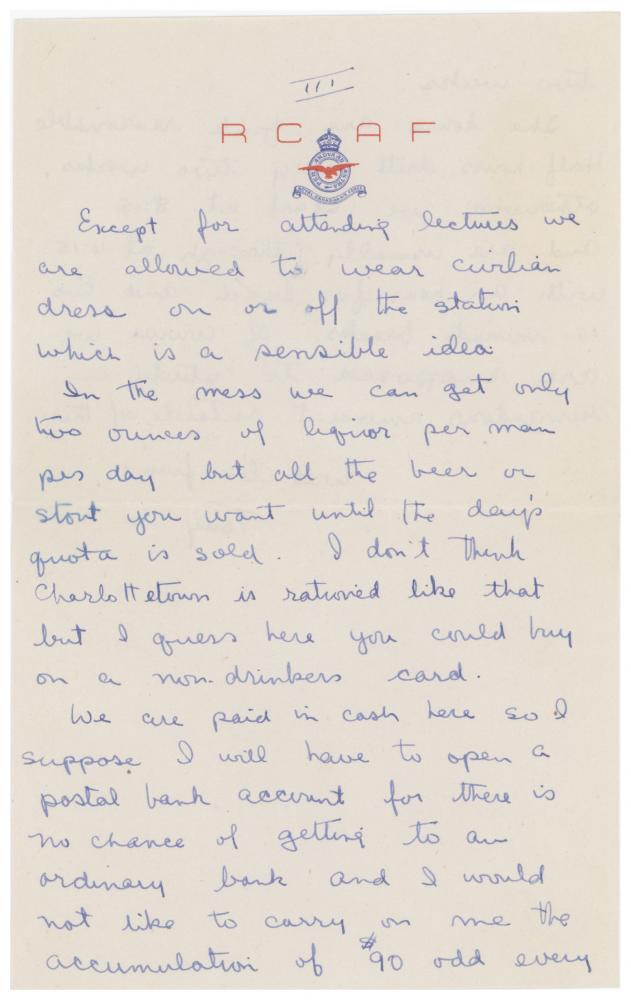 III
R C A F
PER ARDUA AD ASTRA
ROYAL CANADIAN AIR FORCE
Except for attending lectures we
are allowed to wear civilian
dress on or off the station
which is a sensible idea
In the mess we can get only
two ounces of liquor per man
per day but all the beer or
stout you want until the day's
quota is sold. I don't think
Charlottetown is rationed like that
but I guess here you could buy
on a non-drinkers card.
We are paid in cash here so I
suppose I will have to open a
postal bank account for there is
no chance of getting to an
ordinary bank and I would
not like to carry on me the
accumulation of $90 odd every